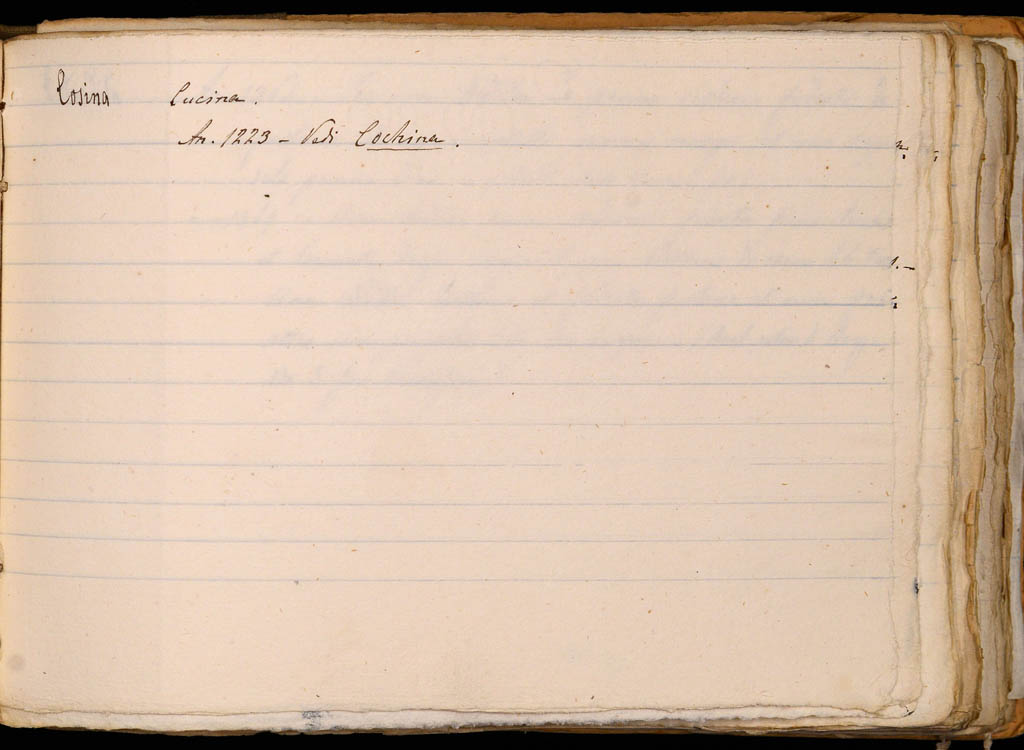 Cosina Cucina.
An. 1223 - Vedi Cochina.